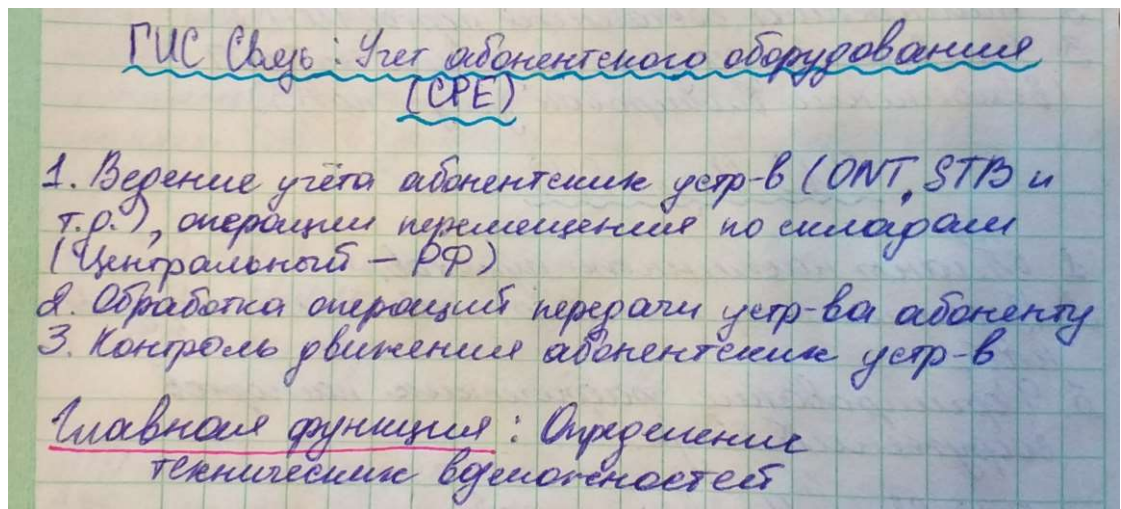 ГИС Связь: Учет абонентского оборудования
(CPE)
1. Ведение учёта абонентских устр-в (ONT, STB и
т.д.), операции перемещения по складам
(Центральный – РФ)
2. Обработка операций передачи устр-ва абоненту
3. Контроль движения абонентских устр-в
Главная функция: Определение
технических возможностей